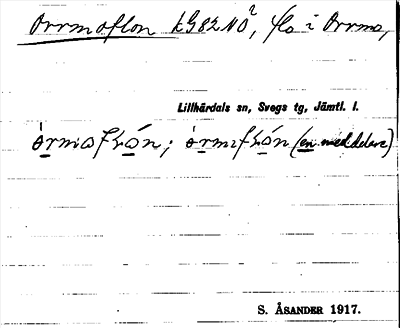 Orrmoflon LG82 NO², flo i Orrmo,
Lillhärdals sn, Svegs tg, Jämtl. l.
(en meddelare)
S. ÅSANDER 1917.